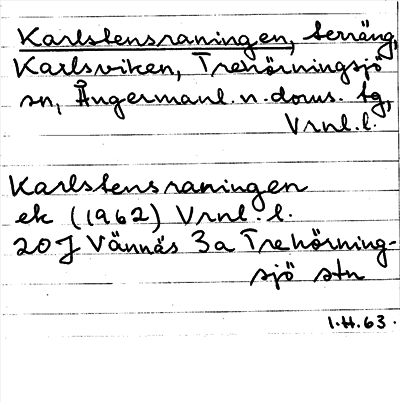 Karlstensraningen, terräng,
Karlsviken, Trehörningsjö
sn, Ångermanl. n. doms. tg,
Vrnl.l.
Karlstensraningen
ek (1962) Vrnl. l.
20 J Vännäs 3a Trehörning-
sjö stn
1.H.63.